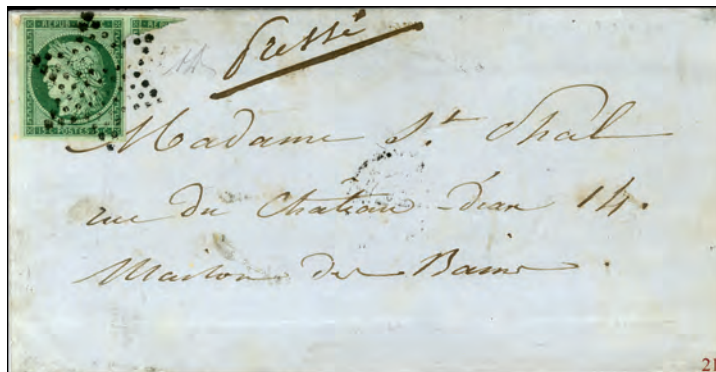 REPUB
REPUB
15 C. POSTES 15 C.
Pressé
Madame St. Phal
rue du Chateau d'eau 14.
Maison des Bains.
21